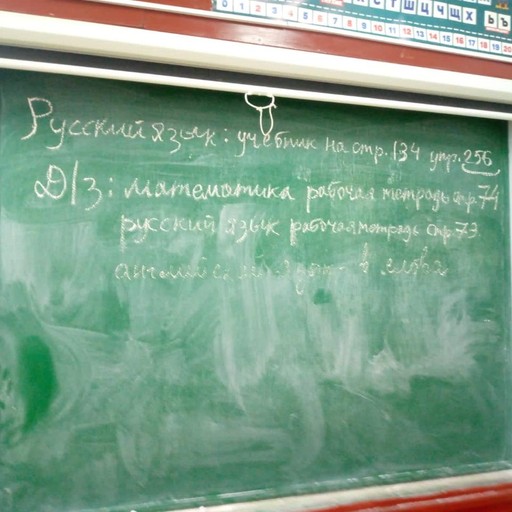 Ш Ц Ч Щ Ь Ъ
0 1 2 3 4 5 6 7 8 9 10 11 12 13 14 15 16 17 18 19 20
Русский язык: учебник на стр. 134 упр. 256
Д/з: математика рабочая тетрадь стр 74
русский язык рабочая тетрадь стр 73
в слова